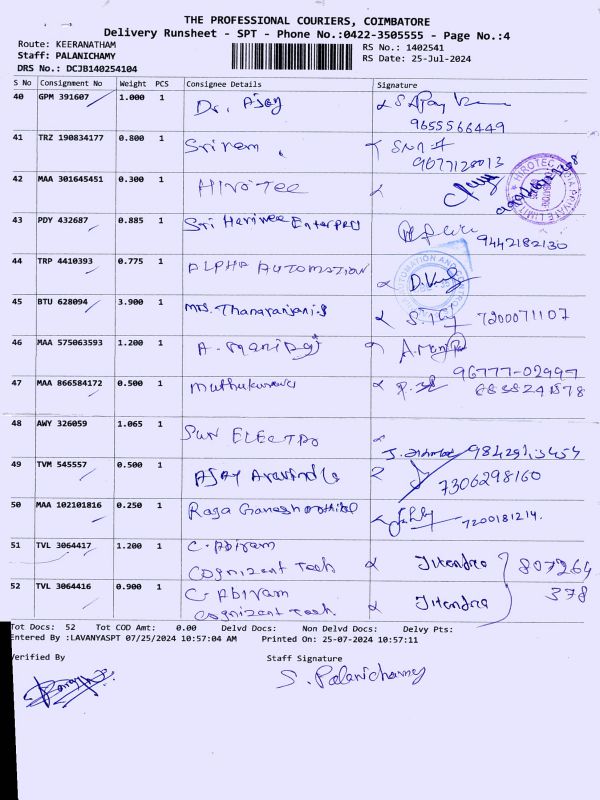 THE PROFESSIONAL COURIERS, COIMBATORE
Delivery Runsheet - SPT - Phone No.:0422-3505555 - Page No.:4
Route: KEERANATHAM
Staff: PALANICHAMY
DRS No.: DCJB140254104
RS No.: 1402541
RS Date: 25-Jul-2024
S No Consignment No Weight PCS Consignee Details Signature
40 GPM 391607 1.000 1 Dr. Ajay
9655566449
41 TRZ 190834177 0.800 1 Sriram
9677120013
42 MAA 301645451 0.300 1 HIROTEC
43 PDY 432687 0.885 1 Sri Harinee Enterpres
9442182130
44 TRP 4410393 0.775 1 ALPHA AUTOMATION
45 BTU 628094 3.900 1 Mrs. Thanaranjani.S 7200071107
46 MAA 575063593 1.200 1
96777-02997
47 MAA 866584172 0.500 1
48 AWY 326059 1.065 1 SUN ELECTRO
49 TVM 545557 0.500 1 Ajay Aravindh
7306298160
50 MAA 102101816 0.250 1 Raga Ganesh 7200181214.
51 TVL 3064417 1.200 1 C. Abiram
Cognizent Tech Jitendra 807264
52 TVL 3064416 0.900 1 C. Abiram 378
Cognizent Tech Jitendra
Tot Docs: 52 Tot COD Amt: 0.00 Delvd Docs: Non Delvd Docs: Delvy Pts:
Entered By :LAVANYASPT 07/25/2024 10:57:04 AM Printed On: 25-07-2024 10:57:11
Verified By Staff Signature
S. Palanichamy